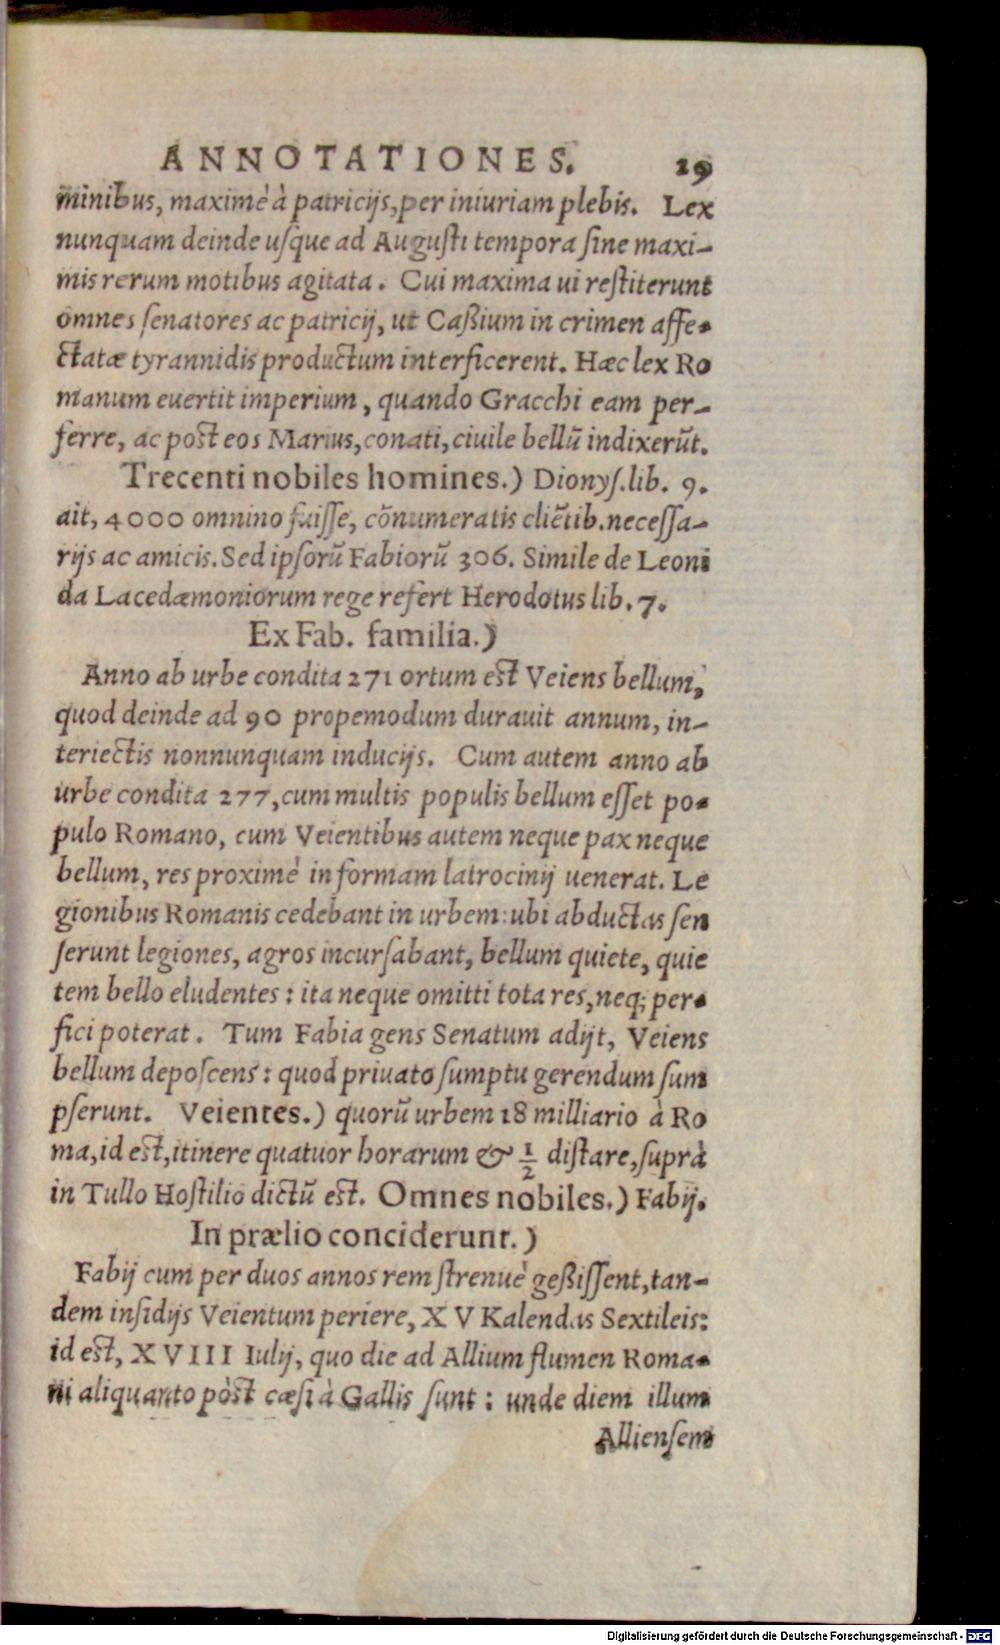 ANNOTATIONES. 19
minibus, maximè à patricijs, per iniuriam plebis. Lex
nunquam deinde uſque ad Auguſti tempora ſine maxi-
mis rerum motibus agitata. Cui maxima ui reſtiterunt
omnes ſenatores ac patricij, ut Caßium in crimen affe-
ctatæ tyrannidis productum interficerent. Hæc lex Ro
manum euertit imperium, quando Gracchi eam per-
ferre, ac poſt eos Marius, conati, ciuile bellũ indixerũt.
Trecenti nobiles homines.) Dionyſ. lib. 9.
ait, 4000 omnino fuiſſe, cõnumeratis cliẽtib. neceſſa-
rijs ac amicis. Sed ipſorũ Fabiorũ 306. Simile de Leoni
da Lacedæmoniorum rege refert Herodotus lib. 7.
Ex Fab. familia.)
Anno ab urbe condita 271 ortum eſt Veiens bellum,
quod deinde ad 90 propemodum durauit annum, in-
teriectis nonnunquam inducijs. Cum autem anno ab
urbe condita 277, cum multis populis bellum eſſet po-
pulo Romano, cum Veientibus autem neque pax neque
bellum, res proximè in formam latrocinij uenerat. Le
gionibus Romanis cedebant in urbem: ubi abductas ſen
ſerunt legiones, agros incurſabant, bellum quiete, quie
tem bello eludentes: ita neque omitti tota res, neq; per-
fici poterat. Tum Fabia gens Senatum adijt, Veiens
bellum depoſcens: quod priuato ſumptu gerendum ſum
pſerunt. Veientes.) quorũ urbem 18 milliario à Ro
ma, id eſt, itinere quatuor horarum & 1/2 diſtare, ſuprà
in Tullo Hoſtilio dictũ eſt. Omnes nobiles.) Fabij.
In prælio conciderunt.)
Fabij cum per duos annos rem ſtrenuè geßiſſent, tan-
dem inſidijs Veientum periere, XV Kalendas Sextileis:
id eſt, XVIII Iulij, quo die ad Allium flumen Roma-
ni aliquanto pòſt cæſi à Gallis ſunt: unde diem illum
Allienſem
Digitalisierung gefördert durch die Deutsche Forschungsgemeinschaft - DFG